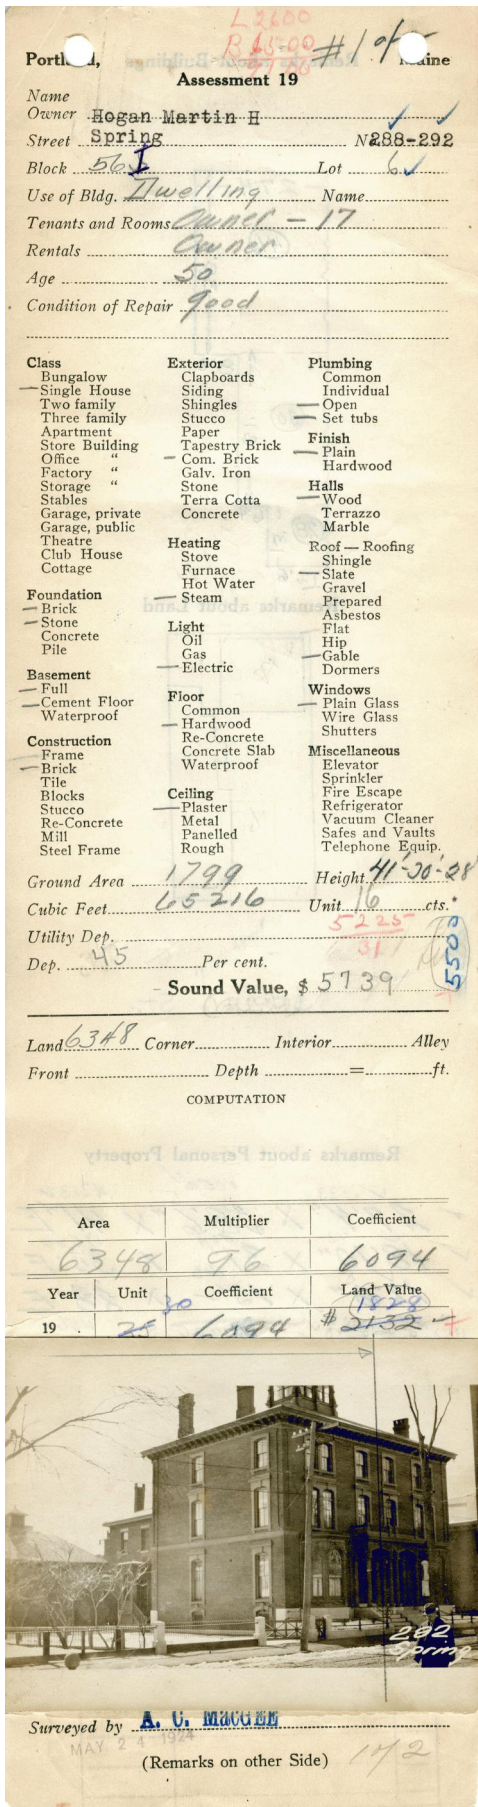 L 2600
#1 of
Portland, Maine
Assessment 19
Name
Owner Hogan Martin H
Street Spring No 288-292
Block 56 I Lot 6
Use of Bldg. Dwelling Name
Tenants and Rooms Owner - 17
Rentals Owner
Age 50
Condition of Repair good
Class
Bungalow
Single House
Two family
Three family
Apartment
Store Building
Office "
Factory "
Storage "
Stables
Garage, private
Garage, public
Theatre
Club House
Cottage
Foundation
Brick
Stone
Concrete
Pile
Basement
Full
Cement Floor
Waterproof
Construction
Frame
Brick
Tile
Blocks
Stucco
Re-Concrete
Mill
Steel Frame
Exterior
Clapboards
Siding
Shingles
Stucco
Paper
Tapestry Brick
Com. Brick
Galv. Iron
Stone
Terra Cotta
Concrete
Heating
Stove
Furnace
Hot Water
Steam
Light
Oil
Gas
Electric
Floor
Common
Hardwood
Re-Concrete
Concrete Slab
Waterproof
Ceiling
Plaster
Metal
Panelled
Rough
Plumbing
Common
Individual
Open
Set tubs
Finish
Plain
Hardwood
Halls
Wood
Terrazzo
Marble
Roof — Roofing
Shingle
Slate
Gravel
Prepared
Asbestos
Flat
Hip
Gable
Dormers
Windows
Plain Glass
Wire Glass
Shutters
Miscellaneous
Elevator
Sprinkler
Fire Escape
Refrigerator
Vacuum Cleaner
Safes and Vaults
Telephone Equip.
Ground Area 1799 Height 41'-20'-28
Cubic Feet 65216 Unit 16 cts.
5225
31
Utility Dep.
5500
Dep. 45 Per cent.
Sound Value, $ 5739
Land 6348 Corner Interior Alley
Front Depth = ft.
COMPUTATION
Remarks about Personal Property
Area Multiplier Coefficient
6348 96 6094
Year Unit Coefficient Land Value
30 1828
19 25 6094 $ 2132
292
Spring
Surveyed by A. C. MacGEE
MAY 24 1924
(Remarks on other Side) 1 of 2